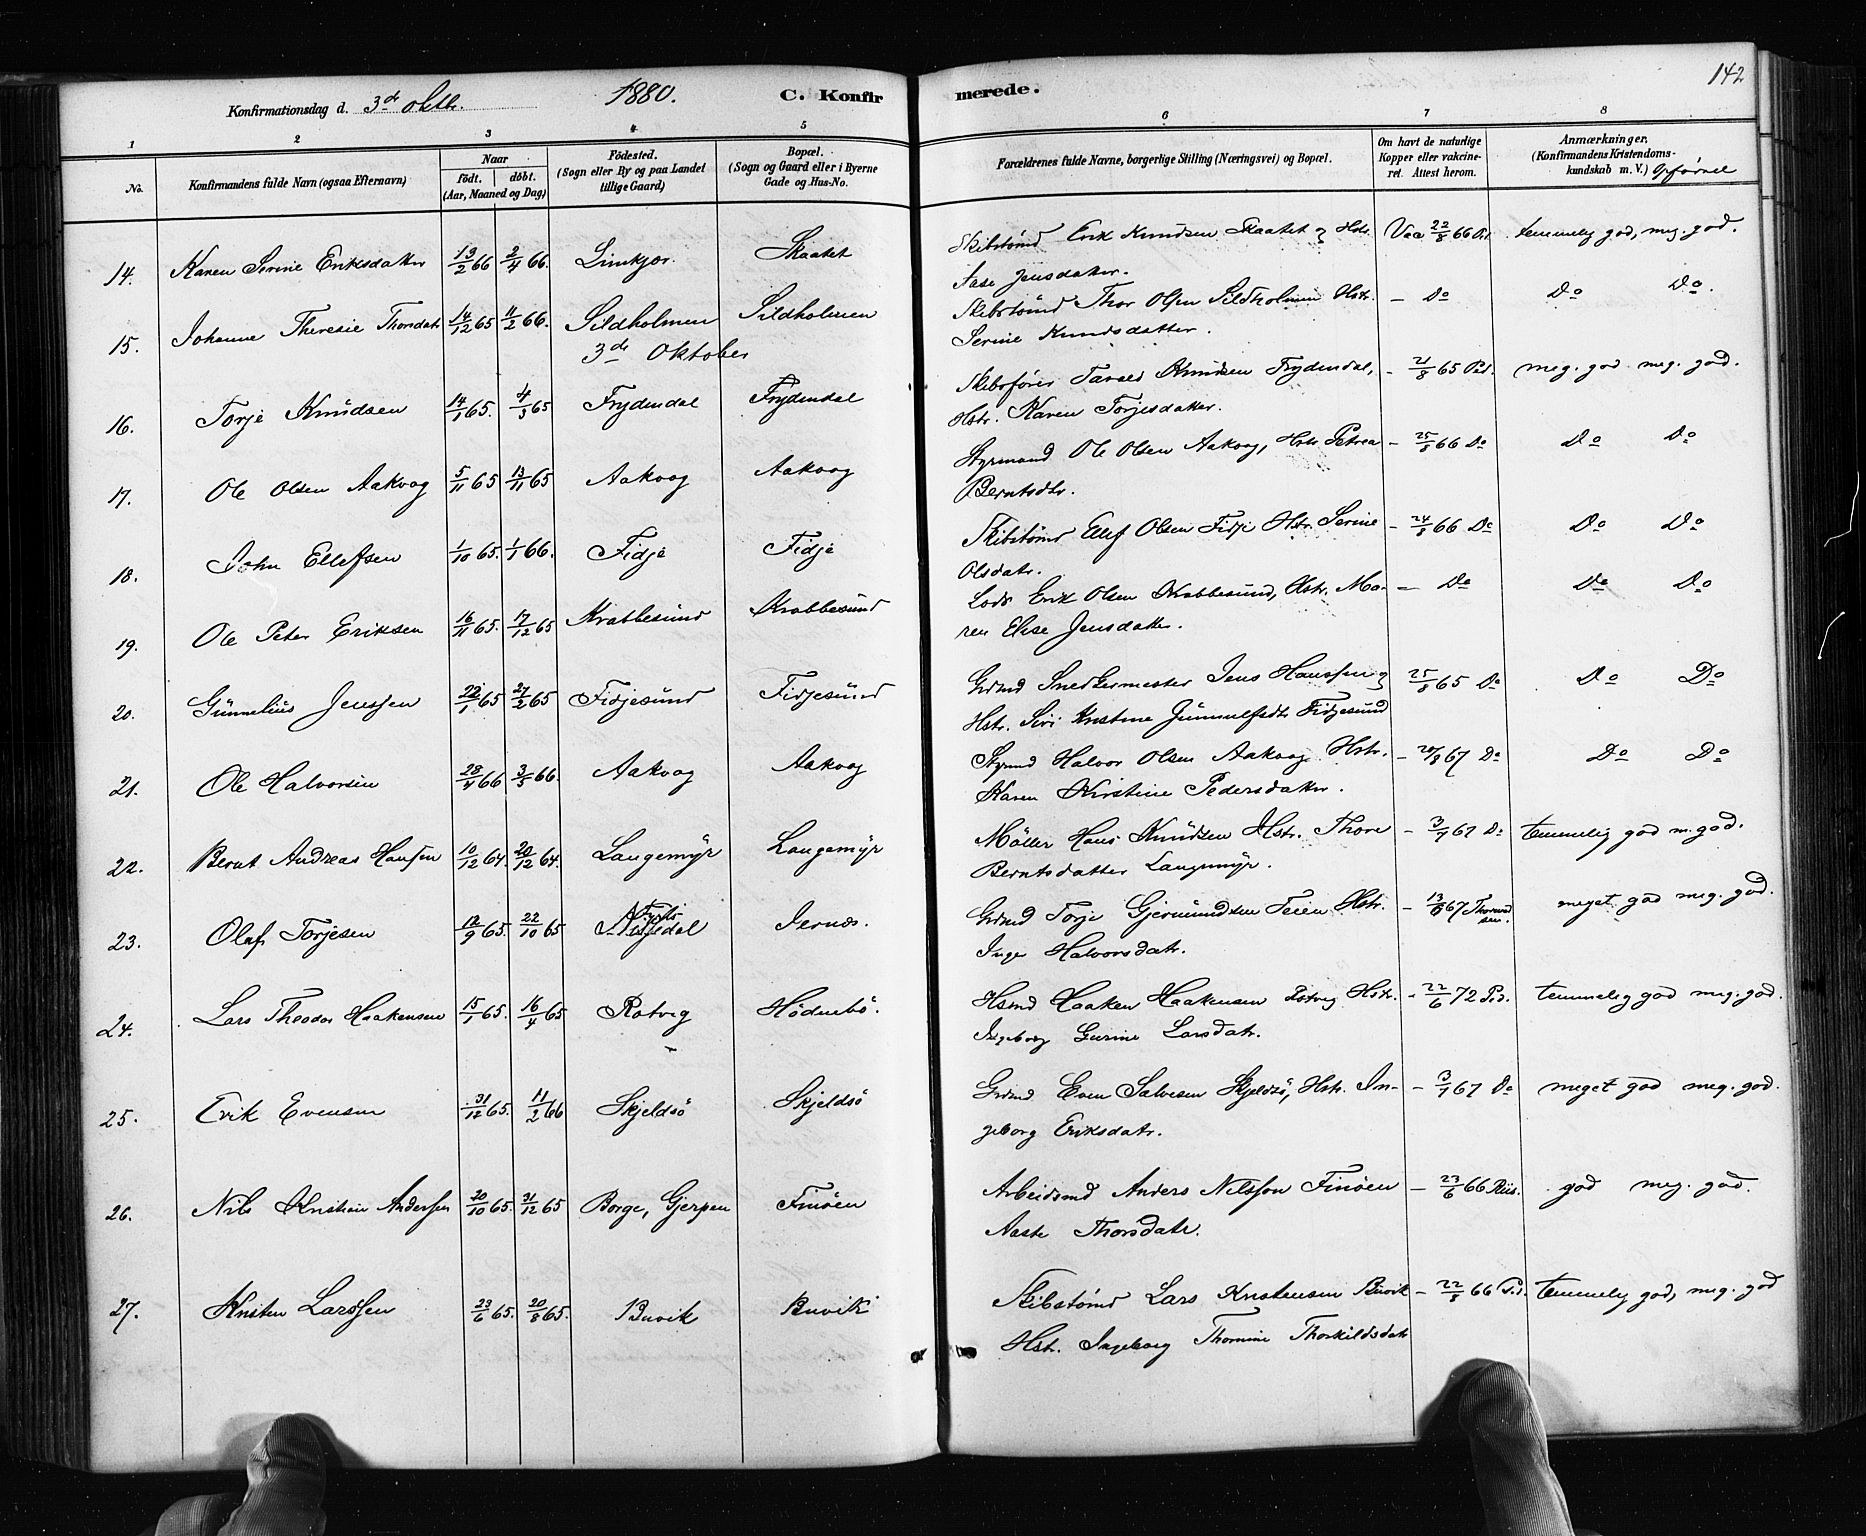 142
Konfirmationsdag d. 3die oktbr. 1880. C. Konfirmerede.
1 2 3 4 5 6 7 8
No. Konfirmandens fulde Navn (ogsaa Efternavn) Naar født. døbt. (Aar, Maaned og Dag) Fødested. (Sogn eller By og paa Landet tillige Gaard) Bopæl. (Sogn og Gaard eller i Byerne Gade og Hus-No. Forældrenes fulde Navne, borgerlige Stilling (Næringsvei) og Bopæl. Om havt de naturlige Kopper eller vakcineret. Attest herom. Anmærkninger, (Konfirmandens Kristendomskundskab m. V.) Opførsel
14. Karen Serine Eriksdatter 13/2 66 2/4 66. Limkjær. Skaatet Skibstømd Erik Knudsen Skaatet og Hstr. Vac 22/8 66 Ped temmelig god, meg. god.
Aase Jensdatter.
15. Johanne Theresie Thorsdatr 14/12 65 11/2 66. Sildholmen Sildholmen Skibstømd Thor Olsen Sildholmen Hstr. — Do Do Do.
Serine Knudsdatter.
3die Oktober
16. Torje Knudsen 14/1 65. 4/3 65 Frydendal Frydendal Skibsfører Tarald Knudsen Frydendal, - 21/8 65 Ped. meg. god meg. god.
Hstr. Karen Torjesdatter.
17. Ole Olsen Aakvag 5/11 65 13/11 65 Aakvag Aakvag Styrmand Ole Olsen Aakvag, Hstr Petrea - 25/8 66 Do Do Do
Berntsdtr.
18. John Ellefsen 1/10 65. 1/1 66. Fidje Fidje Skibstømd Ellef Olsen Fidje Hstr. Serine - 24/8 66 Do Do Do
Olsdatr.
19. Ole Peter Eriksen 16/11 65. 17/12 65 Krabbesund Krabbesund Lods Erik Olsen Krabbesund, Hstr. Ma- — Do Do Do
ren Elise Jensdatter.
20. Gunnelius Jenssen 22/1 65 27/2 65 Fidjesund Fidjesund Grdmd Snedkermester Jens Hanssen og 25/8 65 Do Do Do
Hstr. Siri Kristine Gunnulfsdtr Fidjesund
21. Ole Halvorsen 28/4 66 3/5 66. Aakvag Aakvag Styrmd Halvor Olsen Aakvag Hstr. - 20/8 67 Do Do Do
Karen Kirstine Pedersdatter.
22. Bernt Andreas Hansen 10/12 64. 20/12 64. Langemyr Langemyr Møller Hans Knudsen Hstr. Thore - 3/7 67 Do temmelig god m. god.
Berntsdatter Langemyr.
23. Olaf Torjesen 12/9 65. 22/10 65 Jernæs. Grdmd Torje Gjermundsen Feien Hstr. - 13/6 67 meget god meg. god.
Inger Halvorsdatr.
24. Lars Theodor Haakensen 15/1 65. 16/4 65 Rotvig Hødnebø. Hsmd Haaken Haakensen Rotvig Hstr. - 22/6 72 Ped. temmelig god meg. god.
Ingeborg Gurine Larsdatr.
25. Erik Evensen 31/12 65. 11/2 66 Skjeldsø Skjeldsø Grdmd Even Salvesen Skjeldsø, Hstr. In- - 3/7 67 Do meget god meg. god.
geborg Eriksdatr.
26. Nils Kristian Anderssen 20/10 65. 31/12 65 Borge, Gjerpen Finøen Arbeidsmd Anders Nilsson Finøen — 23/6 66 Riis. god meg. god.
Aaste Thorsdatr.
27. Kristen Larssen 23/6 65. 20/8 65. Buvik Buvik Skibstømd Lars Kristensen Buvik — 22/8 66 Ped. temmelig god, meg. god
Hstr. Ingeborg Thomine Thorkildsdatr